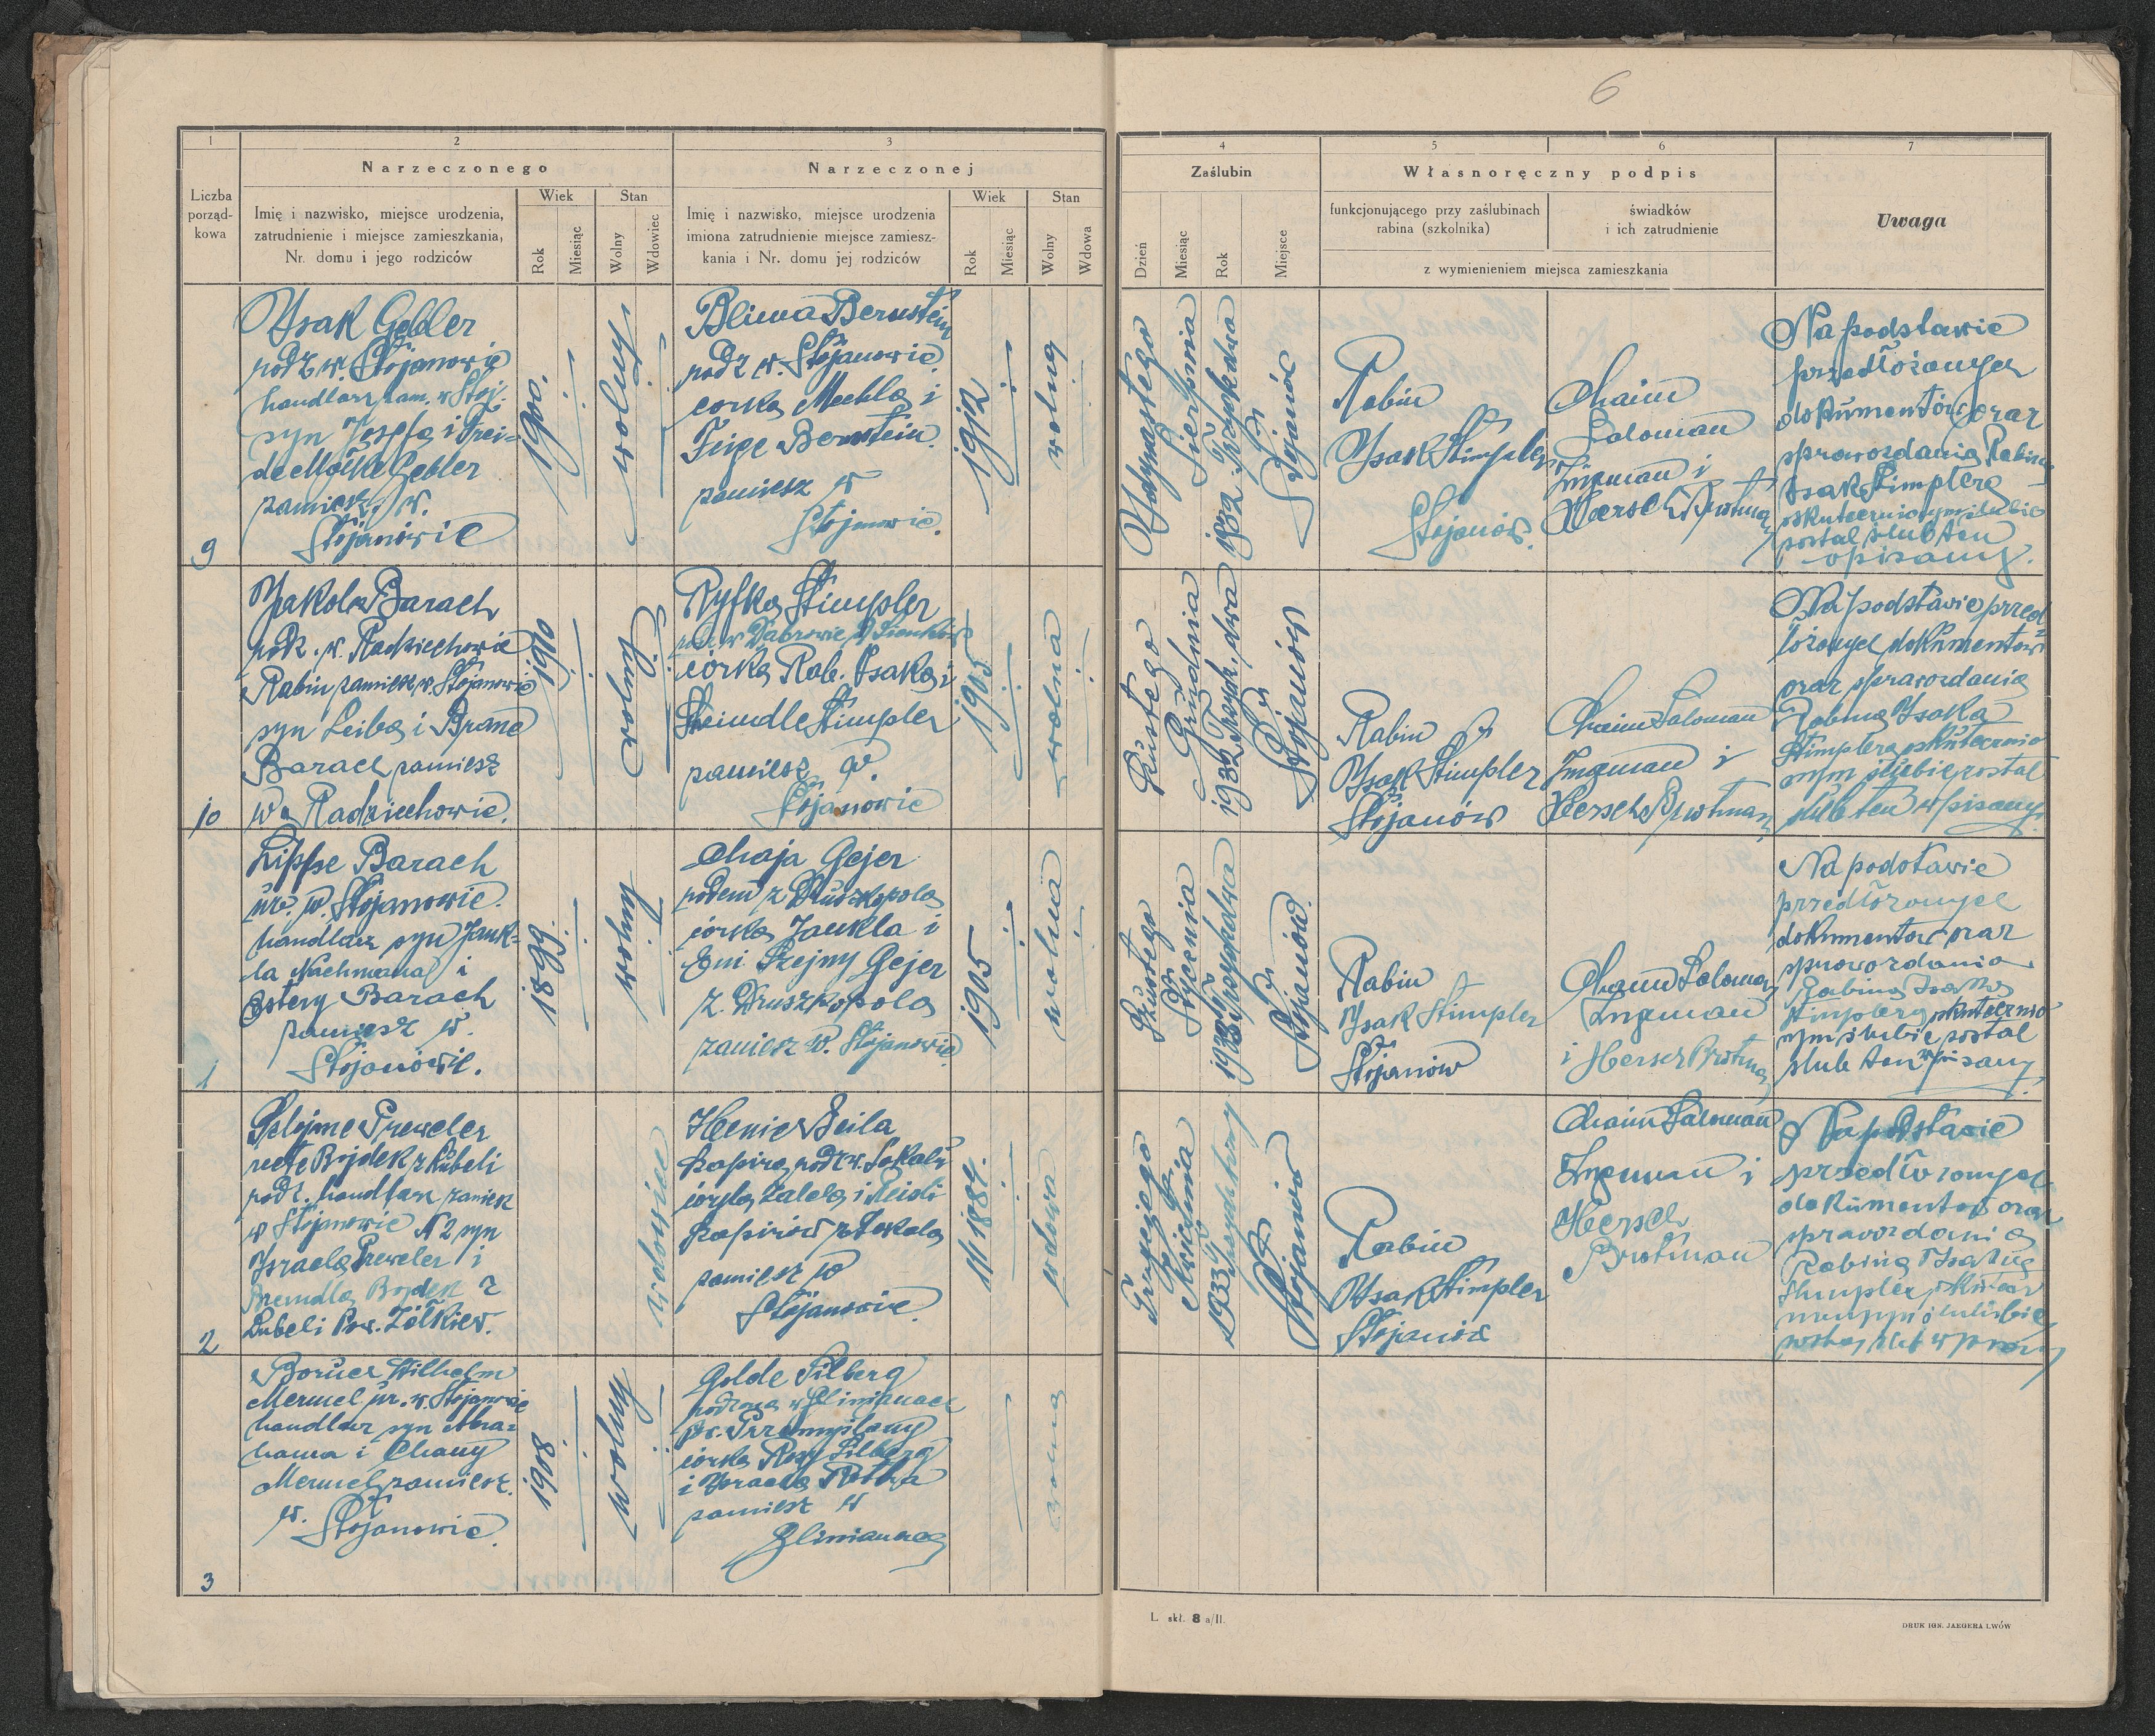 6
1
2
3
4
5
6
7
Narzeczonego
Narzeczonej
Zaślubin
Własnoręczny podpis
Uwaga
Liczba
porząd-
kowa
Imię i nazwisko, miejsce urodzenia,
zatrudnienie i miejsce zamieszkania,
Nr. domu i jego rodziców
Wiek
Rok
Miesiąc
Stan
Wolny
Wdowiec
Imię i nazwisko, miejsce urodzenia
imiona zatrudnienie miejsce zamiesz-
kania i Nr. domu jej rodziców
Wiek
Rok
Miesiąc
Stan
Wolny
Wdowa
Dzień
Miesiąc
Rok
Miejsce
funkcjonującego przy zaślubinach
rabina (szkolnika)
świadków
i ich zatrudnienie
z wymienieniem miejsca zamieszkania
9
Isak Gebler
rodz w. Stojanowie
handlarz zam. w Stoj.
syn Josefa i Frei-
de Malke Gebler
zamiesz. w.
Stojanowie
1900.
wolny
Bliwa Bernstein
rodz w. Stojanowie
corka Mechla i
Feige Bernstein.
zamiesz w
Stojanowie.
1912
wolna
Sierpnia
1932
Stojanów
Rabin
Isak Stimpler
Stojanów.
Chaim
Saloman
Ingman i
Hersch Brotman
Na podstawie
przedłożonych
dokumentów oraz
sprawozdania Rabina
Isak Stimplera
oskutecznionym ślubie
został ślub ten
opisany.
10
Jakob Barach
rodz. w. Radziechowie
Rabin zamiesz w. Stojanowie
syn Leiba i Brane
Barach zamiesz
w Radziechowie.
1910
wolny
Ryfka Stimpler
corka Rab. Isaka i
Scheindle Stimpler
zamiesz w.
Stojanowie
1905
wolna
Szóstego
Grudnia
1932 Trzydz. dwa
Stojanów
Rabin
Isak Stimpler
Stojanów
Chaim Saloman
Ingman i
Hersch Brotman
Na podstawie przed
łożonych dokumentów
oraz sprawozdania
Rabina Isaka
Stimplera oskutecznio
nym ślubie został
ślub ten wpisany.
1
Lippe Barach
ur. w. Stojanowie.
handlarz syn Jank-
la Nachmana i
Estery Barach
zamiesz w.
Stojanowie.
1899.
wolny
Chaja Gejer
rodem z Druszkopola
corka Jankla i
Eni Szejny Gejer
z. Druszkopola
zamiesz w. Stojanowie
1905
wolna
Szóstego
Stycznia
Stojanów.
Rabin
Isak Stimpler
Stojanów
Chaim Saloman
Ingman
i Hersch Brotman
Na podstawie
przedłożonych
dokumentów oraz
sprawozdania
Rabina Isaka
Stimplera oskutecznio
nym ślubie został
ślub ten wpisany
2
Schlojme Preweler
recte Bojdek z Lubeli
rodz. handlarz zamiesz
w Stojanowie N 2 syn
Israela Preweler i
Bremdla Bojdek z
Lubeli Pow. Żółkiew.
wdowiec
Henie Beila
Szapira, rodz w. Sokalu
corka Zalela i Reisli
Szapirów z Sokala
zamiesz w
Stojanowie
1884.
wdowa
Trzeciego
Kwietnia
1933
Stojanów
Rabin
Isak Stimpler
Stojanów
Chaim Saloman
Ingman i
Hersch
Brotman
Na podstawie
przedłożonych
dokumentów oraz
sprawozdania
Rabina Isaka
Stimpler
3
Boruch Wilhelm
Mermel ur. w. Stojanowie
handlarz syn Abra-
hama i Chany
Mermel zamiesz.
w. Stojanowie.
1908
wolny
Golde Silberg
rodzona w Glinianach
pow. Przemyślany
corka Rozy Silberg
i Israela Rotha
zamiesz w
Glinianach
wolna
L. skł. 8 a/II.
DRUK IGN. JAEGERA LWÓW